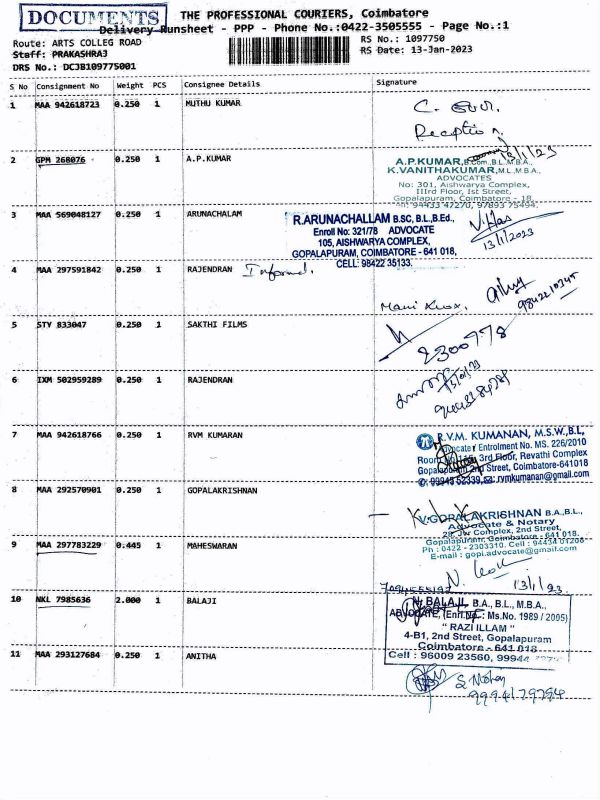 DOCUMENTS
THE PROFESSIONAL COURIERS, Coimbatore
Delivery Runsheet - PPP - Phone No.:0422-3505555 - Page No.:1
Route: ARTS COLLEG ROAD
RS No.: 1097750
Staff: PRAKASHRAJ
RS Date: 13-Jan-2023
DRS No.: DCJB109775001
S No Consignment No Weight PCS Consignee Details Signature
1 MAA 942618723 0.250 1 MUTHU KUMAR
Reception
13/1/23
2 GPM 268076 0.250 1 A.P.KUMAR
A.P.KUMAR, B.Com., B.L., M.B.A.,
K.VANITHAKUMAR, M.L., M.B.A.,
ADVOCATES
No: 301, Aishwarya Complex,
IIIrd Floor, Ist Street,
Gopalapuram, Coimbatore - 18.
94433 47270, 97893 75494
3 MAA 569048127 0.250 1 ARUNACHALAM
R.ARUNACHALLAM B.SC, B.L.,B.Ed.,
Enroll No: 321/78 ADVOCATE
105, AISHWARYA COMPLEX,
GOPALAPURAM, COIMBATORE - 641 018,
CELL: 98422 35133.
13/1/2023
4 MAA 297591842 0.250 1 RAJENDRAN Informed.
9842210345
5 STY 833047 0.250 1 SAKTHI FILMS
2300778
6 IXM 502959289 0.250 1 RAJENDRAN
7 MAA 942618766 0.250 1 RVM KUMARAN
R.V.M. KUMANAN, M.S.W.,B.L,
Advocate / Entrolment No. MS. 226/2010
3rd Floor, Revathi Complex
2nd Street, Coimbatore-641018
99948 52339, rvmkumanan@gmail.com
8 MAA 292570901 0.250 1 GOPALAKRISHNAN
V.GOPALAKRISHNAN B.A.,B.L.,
Advocate & Notary
Complex, 2nd Street,
Gopalapuram, Coimbatore - 641 018.
Ph : 0422 - 2303310. Cell : 94434 01208
E-mail : gopi.advocate@gmail.com
9 MAA 297783229 0.445 1 MAHESWARAN
13/1/23
10 NKL 7985636 2.000 1 BALAJI
N. BALAJI, B.A., B.L., M.B.A.,
ADVOCATE, (Enrl.No.: Ms.No. 1989 / 2005)
" RAZI ILLAM "
4-B1, 2nd Street, Gopalapuram
Coimbatore - 641 018
Cell : 96009 23560, 99944
11 MAA 293127684 0.250 1 ANITHA
S. Mohan
9994179794